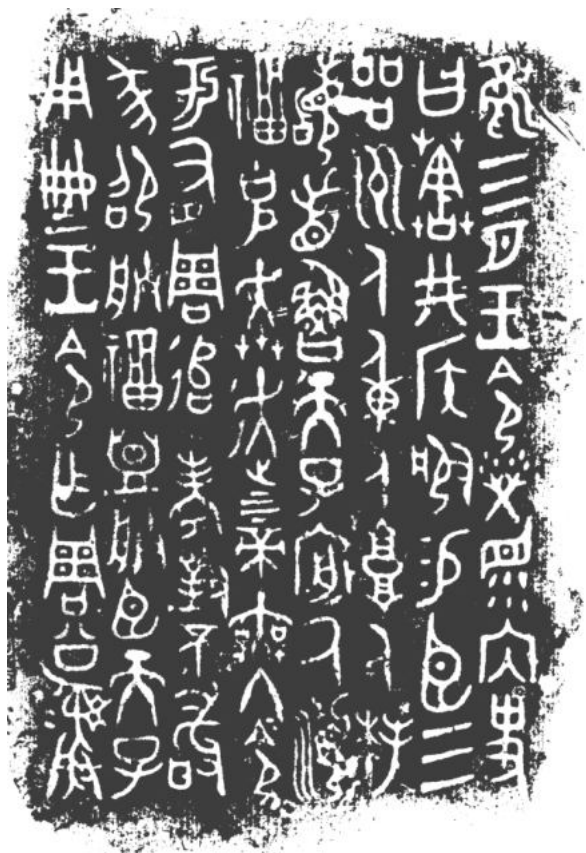 隹三月王令榮眔內史
曰𦵯井侯服易臣三
品州人重人𩫖人拜
稽首魯天子厥瀕
福克奔走上下帝無冬令
于有周追孝對不敢
彖邵朕福盟朕臣天子
用冊王令乍周公彝